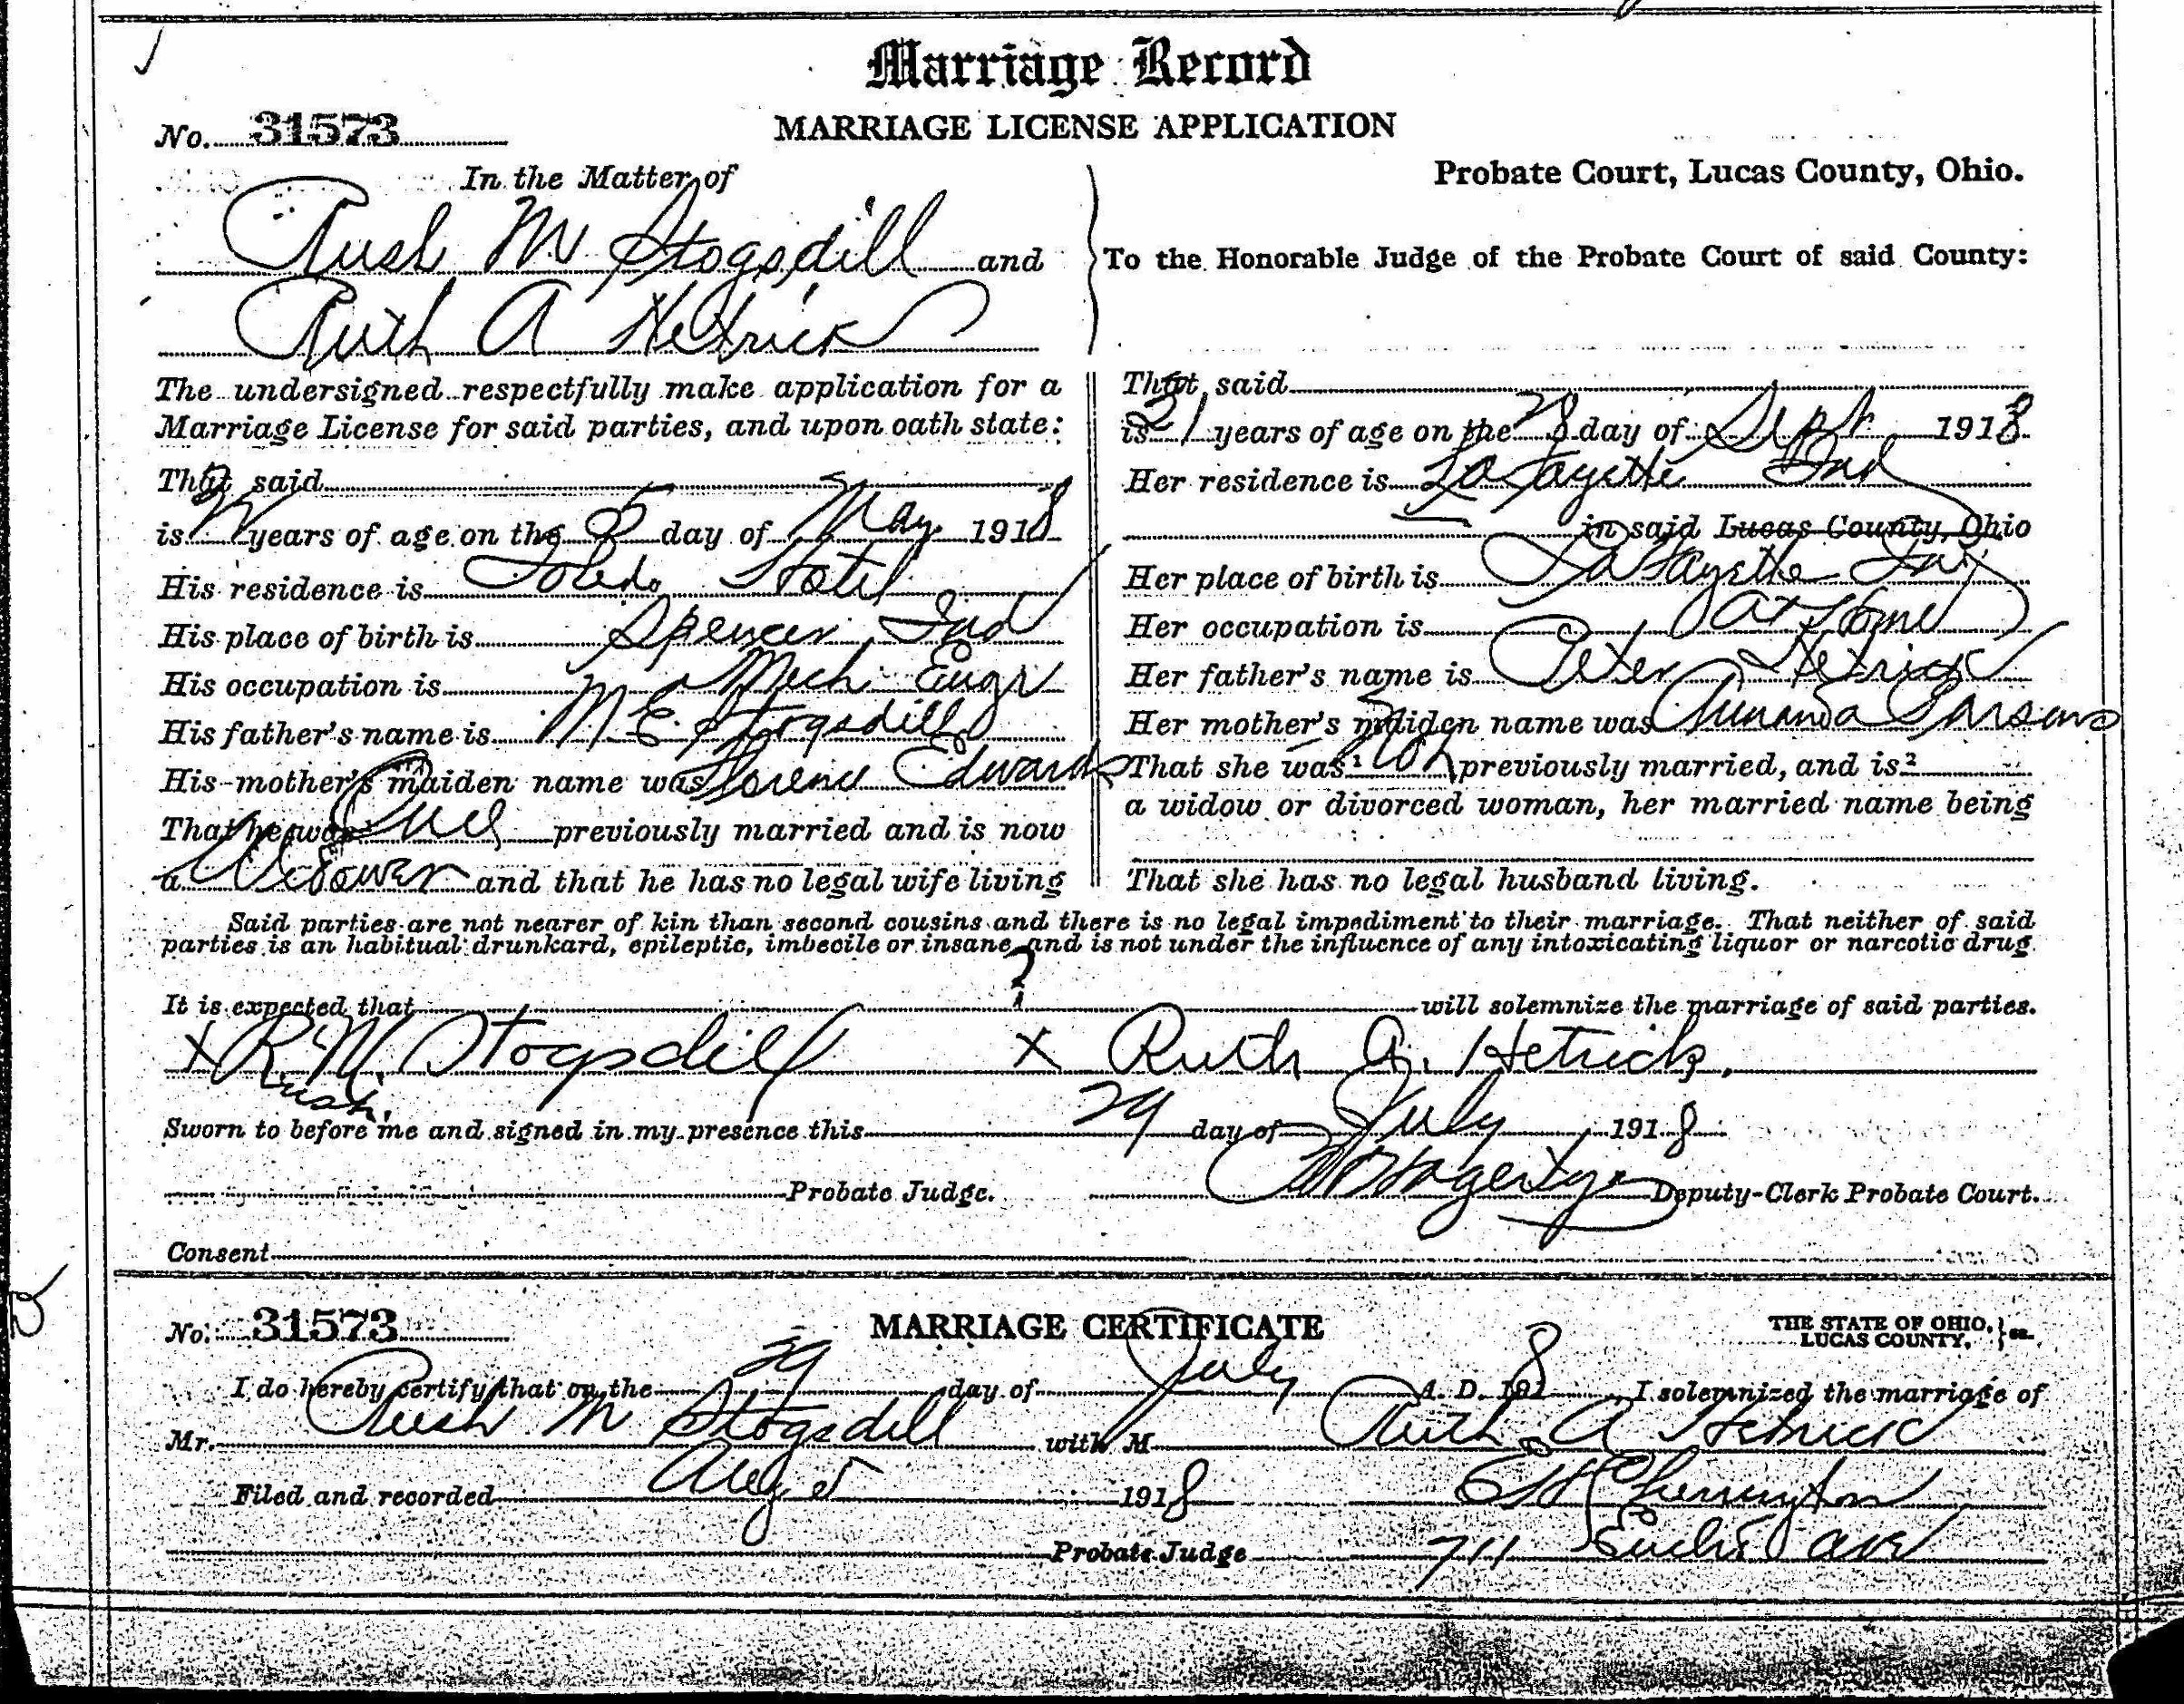 Marriage Record
MARRIAGE LICENSE APPLICATION
No. 31573
Probate Court, Lucas County, Ohio.
In the Matter of
Rush M Stogsdill and
Ruth A Hetrick
To the Honorable Judge of the Probate Court of said County:
The undersigned respectfully make application for a
Marriage License for said parties, and upon oath state:
That said
is years of age on the 5 day of May 1918
His residence is Toledo Hotel
His place of birth is Spencer, Ind
His occupation is Mech. Engr
His father's name is M E. Stogsdill
His mother's maiden name was Florence Edwards
That he was once previously married and is now
a Widower and that he has no legal wife living
That said
is 21 years of age on the 28 day of Sept. 1918
Her residence is LaFayette Ind
in said Lucas County, Ohio
Her place of birth is LaFayette Ind
Her occupation is at Home
Her father's name is Peter Hetrick
Her mother's maiden name was Parsons
That she was¹ not previously married, and is²
a widow or divorced woman, her married name being
That she has no legal husband living.
Said parties are not nearer of kin than second cousins and there is no legal impediment to their marriage. That neither of said
parties is an habitual drunkard, epileptic, imbecile or insane, and is not under the influence of any intoxicating liquor or narcotic drug.
It is expected that ? will solemnize the marriage of said parties.
x R. M. Stogsdill x Ruth A. Hetrick.
Rush.
Sworn to before me and signed in my presence this 29 day of July 1918
Probate Judge. Deputy-Clerk Probate Court.
Consent
No. 31573 MARRIAGE CERTIFICATE THE STATE OF OHIO, } ss.
LUCAS COUNTY,
I do hereby certify that on the 29 day of July A. D. 191 8, I solemnized the marriage of
Mr. Rush M Stogsdill with M Ruth A Hetrick
Filed and recorded Aug 5 1918 E H Cherrington
Probate Judge 711 Euclid ave